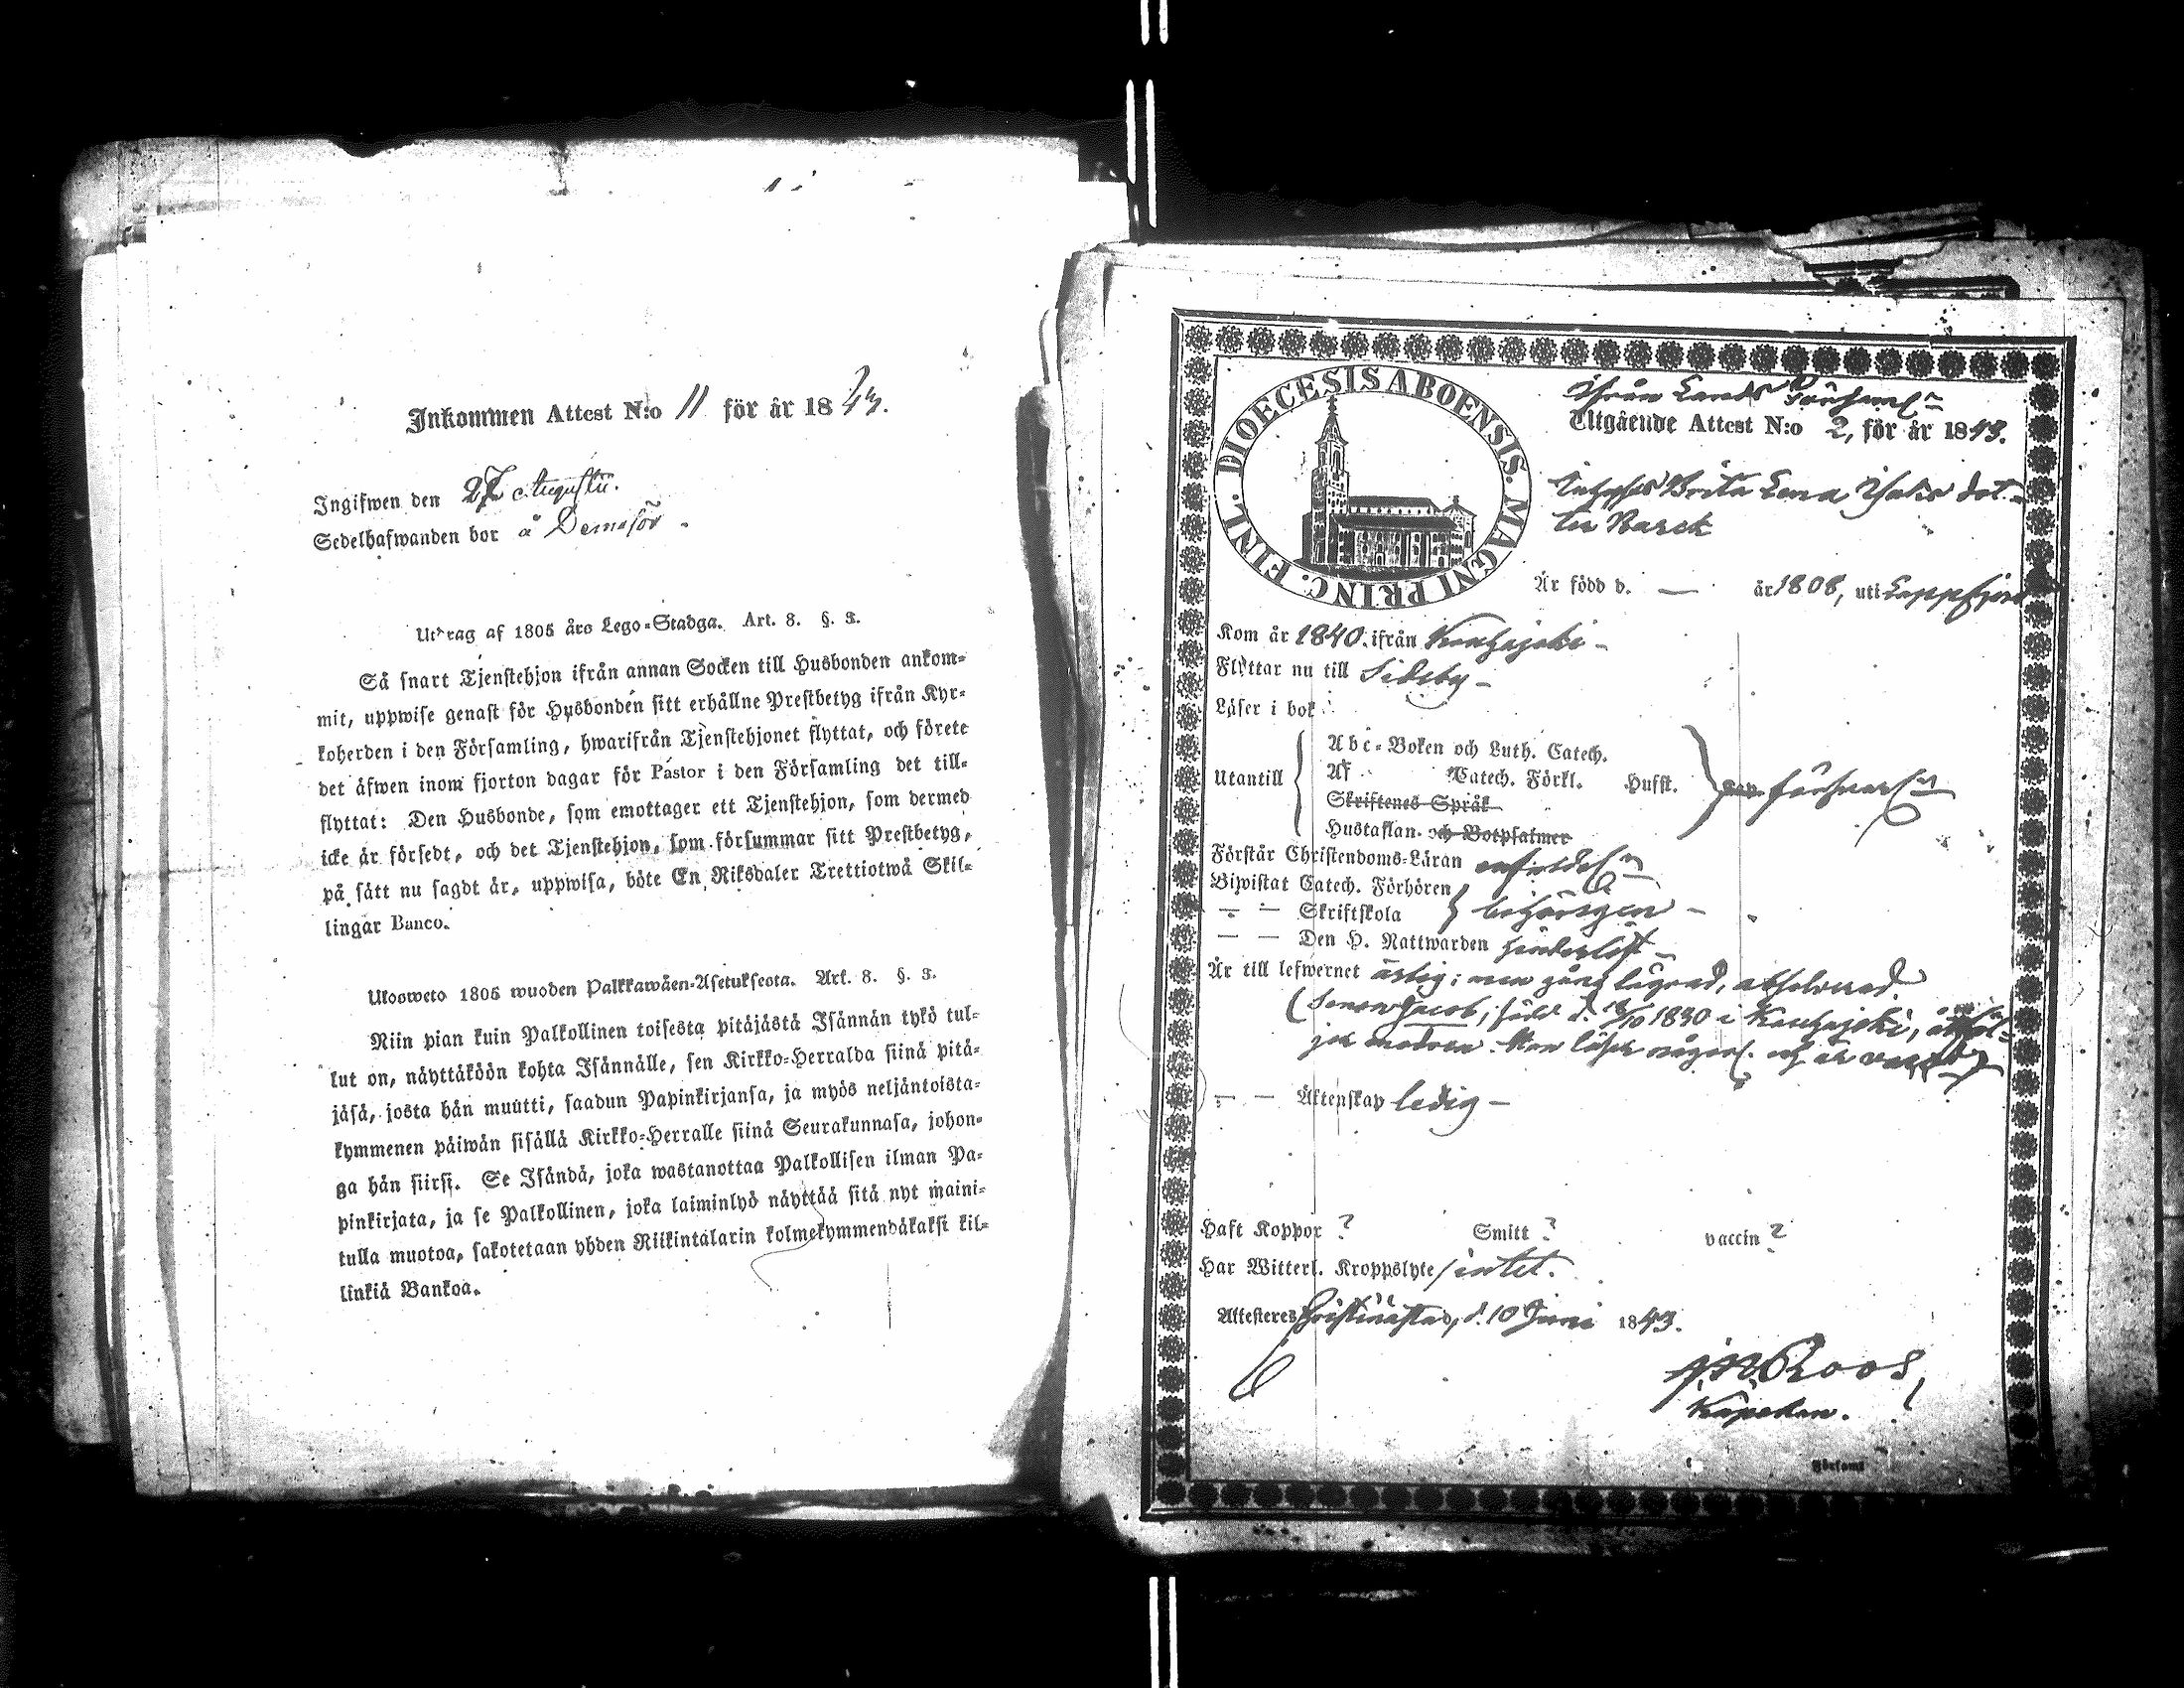 Inkommen Attest N:o 11 för år 1843.
Ingifwen den 27 Augusti.
Sedelhafwanden bor å
Utdrag af 1805 års Lego-Stadga. Art. 8. §. 3.
Så snart Tjenstehjon ifrån annan Socken till Husbonden ankom-
mit, uppwise genast för Husbonden sitt erhållne Prestbetyg ifrån Kyr-
koherden i den Församling, hwarifrån Tjenstehjonet flyttat, och förete
det åfwen inom fjorton dagar för Pastor i den Församling det till-
flyttat: Den Husbonde, som emottager ett Tjenstehjon, som dermed
icke är försedt, och det Tjenstehjon, som försummar sitt Prestbetyg,
på sått nu sagdt är, uppwisa, böte En Riksdaler Trettiotwå Skil-
lingar Banco.
Ulosweto 1805 wuoden Palkkawäen-Asetuksesta. Art. 8. §. 3.
Niin pian kuin Palkollinen toisesta pitäjästä Isännän tykö tul-
lut on, näyttäköön kohta Isännälle, sen Kirkko-Herralda siinä pitä-
jäsä, josta hän muutti, saadun Papinkirjansa, ja myös neljäntoista-
kymmenen päiwän sisällä Kirkko-Herralle siinä Seurakunnasa, johon-
ga hän siirsi. Se Isändä, joka wastanottaa Palkollisen ilman Pa-
pinkirjata, ja se Palkollinen, joka laiminlyö näyttää sitä nyt maini-
tulla muotoa, sakotetaan yhden Riikintalarin kolmekymmendäkaksi kil-
linkiä Bankoa.
DIOECESIS ABOENSIS. MAGNI PRINC. FINL.
Ifrån Lands
Utgående Attest N:o 2, för år 1843.
Brita Lena dot-
ter Barck
Är född d. — år 1808, uti Lappfjerd
Kom år 1840. ifrån Kauhajoki -
Flyttar nu till Sideby -
Läser i bok
Utantill
Abc-Boken och Luth. Catech.
Af Catech. Förkl. Husst.
Skriftenes Språk
Hustaflan. och Botpsalmer
försvarl.
Förstår Christendoms-Läran
Biwistat Catech. Förhören
— — Skriftskola behörigen -
— — Den H. Nattwarden hinderlöst -
Är till lefwernet ärlig; men gång lägrad, absolverad.
(Sonen Jacob, född d. 1830 i Kauhajoki, åtföl-
jer modren. Han läser någorl. och är
— — Äktenskap ledig -
Haft Koppor ? Smitt ? vaccin ?
Har Witterl. Kroppslyte intet.
Attesteres Christinæstad, d. 10 Juni 1843.
Roos,
Kapellan.